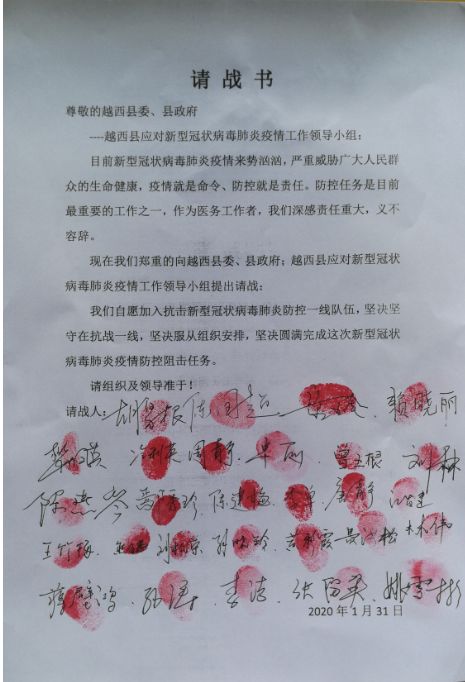 请战书
尊敬的越西县委、县政府
----越西县应对新型冠状病毒肺炎疫情工作领导小组：
目前新型冠状病毒肺炎疫情来势汹汹，严重威胁广大人民群
众的生命健康，疫情就是命令、防控就是责任。防控任务是目前
最重要的工作之一，作为医务工作者，我们深感责任重大，义不
容辞。
现在我们郑重的向越西县委、县政府；越西县应对新型冠状
病毒肺炎疫情工作领导小组提出请战：
我们自愿加入抗击新型冠状病毒肺炎防控一线队伍，坚决坚
守在抗战一线，坚决服从组织安排，坚决圆满完成这次新型冠状
病毒肺炎疫情防控阻击任务。
请组织及领导准于！
请战人： 赖晓丽
周静
陈建梅 唐静
李洁
2020年1月31日